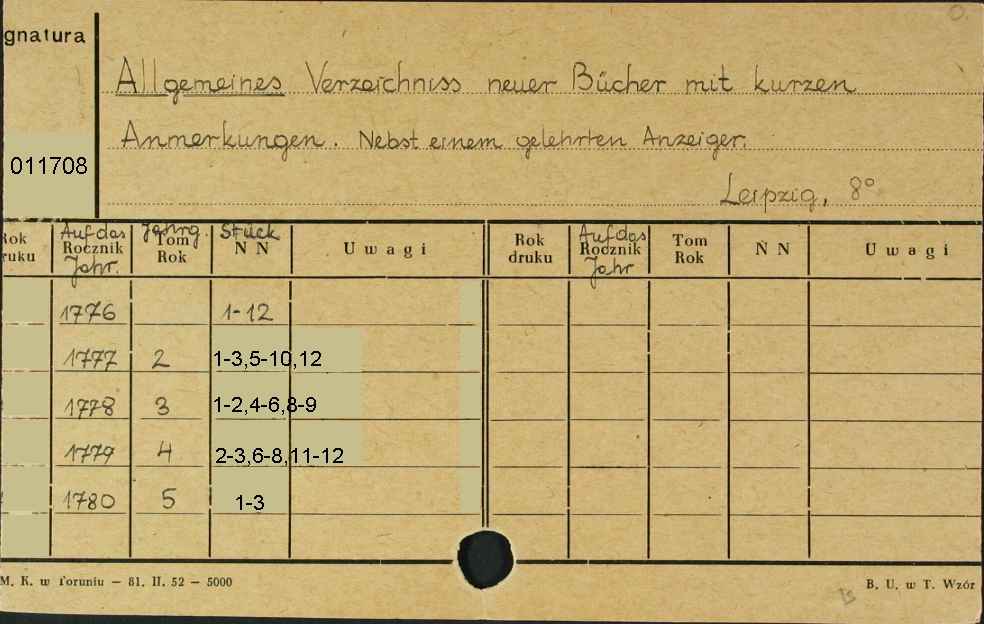 gnatura
Allgemeines Verzeichniss neuer Bücher mit kurzen
Anmerkungen. Nebst einem gelehrten Anzeiger.
011708
Leipzig, 8°
Rok druku | Auf das Rocznik Jahr. | Jahrg. Tom Rok | Stück N N | Uwagi | Rok druku | Auf das Rocznik Jahr | Tom Rok | N N | Uwagi
1776 1-12
1777 2 1-3,5-10,12
1778 3 1-2,4-6,8-9
1779 4 2-3,6-8,11-12
1780 5 1-3
M. K. w Toruniu — 81. II. 52 — 5000
B. U. w T. Wzór